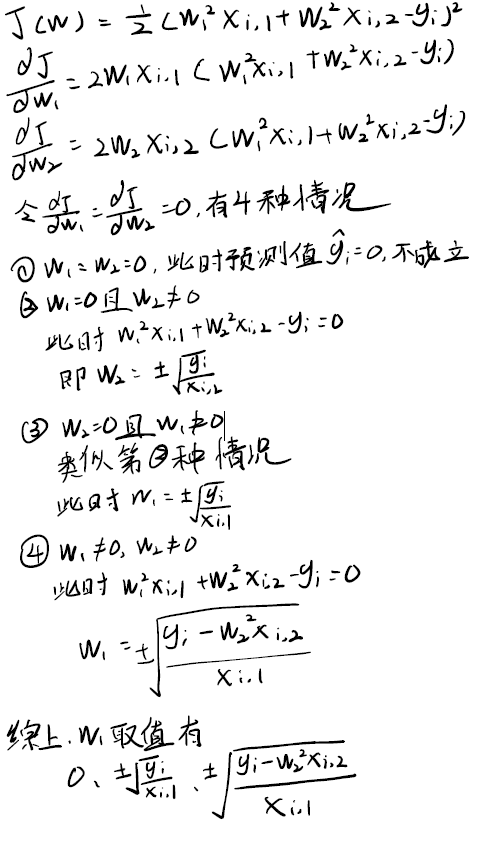 J(w) = 1/2 (w₁²xᵢ,₁ + w₂²xᵢ,₂ - yᵢ)²
dJ/dw₁ = 2w₁xᵢ,₁ (w₁²xᵢ,₁ + w₂²xᵢ,₂ - yᵢ)
dJ/dw₂ = 2w₂xᵢ,₂ (w₁²xᵢ,₁ + w₂²xᵢ,₂ - yᵢ)
令 dJ/dw₁ = dJ/dw₂ = 0, 有4种情况
① w₁ = w₂ = 0, 此时预测值 ŷᵢ = 0, 不成立
② w₁ = 0 且 w₂ ≠ 0
此时 w₁²xᵢ,₁ + w₂²xᵢ,₂ - yᵢ = 0
即 w₂ = ±√(yᵢ/xᵢ,₂)
③ w₂ = 0 且 w₁ ≠ 0
类似第②种情况
此时 w₁ = ±√(yᵢ/xᵢ,₁)
④ w₁ ≠ 0, w₂ ≠ 0
此时 w₁²xᵢ,₁ + w₂²xᵢ,₂ - yᵢ = 0
w₁ = ±√((yᵢ - w₂²xᵢ,₂)/xᵢ,₁)
综上, w₁ 取值有
0、±√(yᵢ/xᵢ,₁)、±√((yᵢ - w₂²xᵢ,₂)/xᵢ,₁)